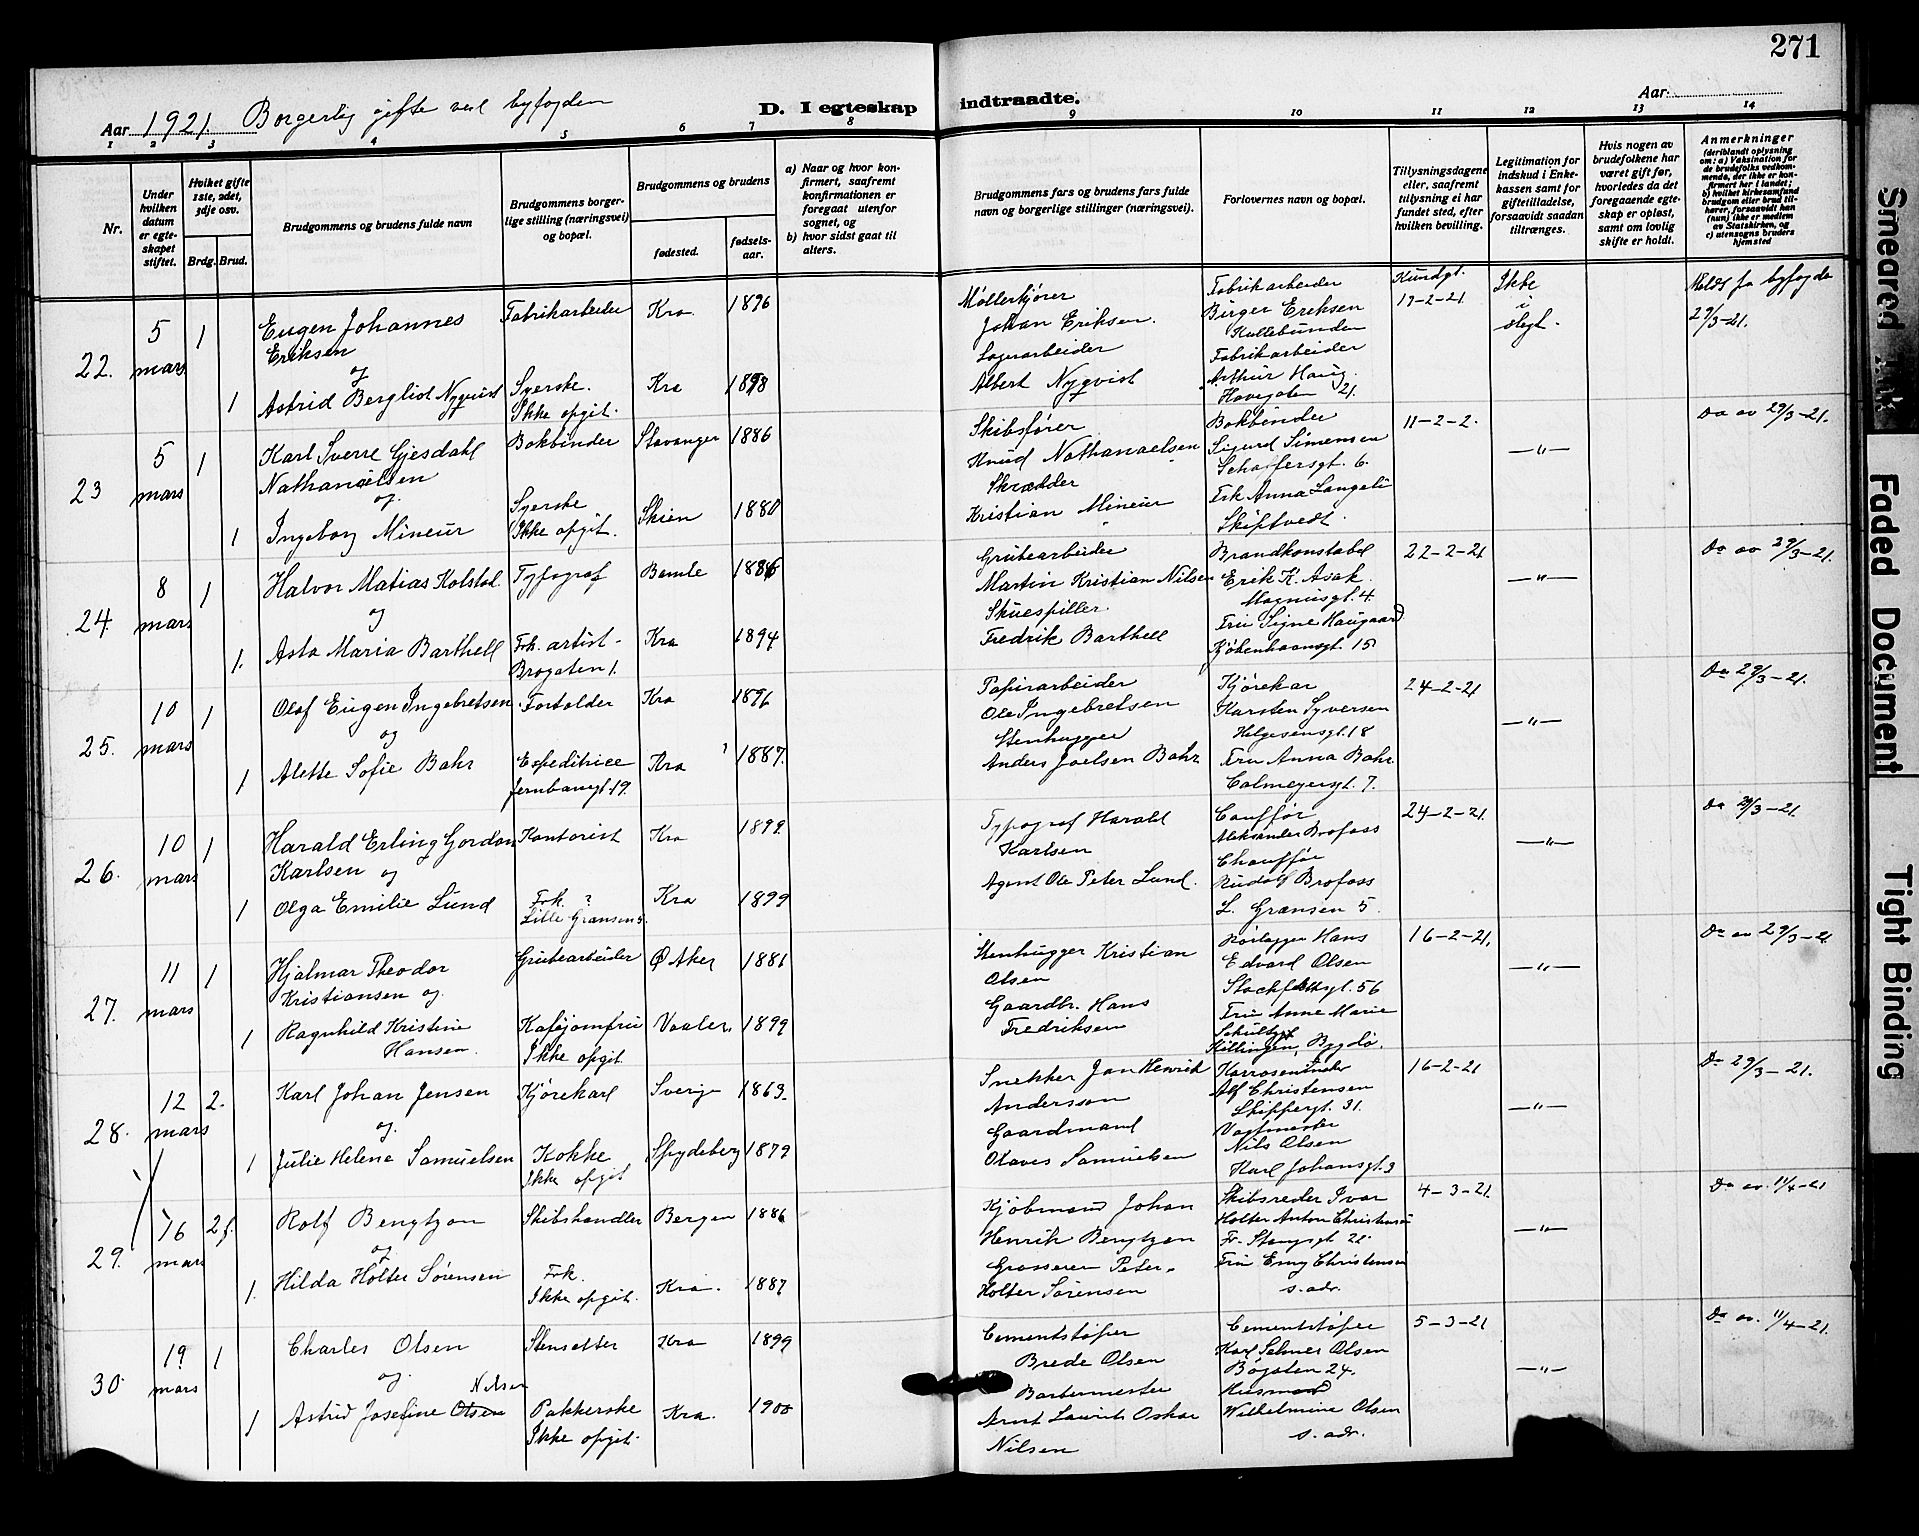 271
Aar 1921. Borgerlig gifte ved byfogden
D. I egteskap indtraadte.
Aar:
1 2 3 4 5 6 7 8 9 10 11 12 13 14
Nr.
Under hvilken datum er egteskapet stiftet.
Hvilket gifte 1ste, 2det, 3dje osv.
Brdg. Brud.
Brudgommens og brudens fulde navn
Brudgommens borgerlige stilling (næringsvei) og bopæl.
Brudgommens og brudens
fødested.
fødselsaar.
a) Naar og hvor konfirmert, saafremt konfirmationen er foregaat utenfor sognet, og
b) hvor sidst gaat til alters.
Brudgommens fars og brudens fars fulde navn og borgerlige stillinger (næringsvei).
Forlovernes navn og bopæl.
Tillysningsdagene eller, saafremt tillysning ei har fundet sted, efter hvilken bevilling.
Legitimation for indskud i Enkekassen samt for giftetilladelse, forsaavidt saadan tiltrænges.
Hvis nogen av brudefolkene har været gift før, hvorledes da det foregaaende egteskap er opløst, samt om lovlig skifte er holdt.
Anmerkninger
(deriblandt oplysning om: a) Vaksination for de brudefolks vedkommende, der ikke er konfirmert her i landet; b) hvilket kirkesamfund brudgom eller brud tilhører, forsaavidt han (hun) ikke er medlem av Statskirken, og c) utensogns bruders hjemsted
22. 5 mars 1
Eugen Johannes
Eriksen
og
1 Astrid Bergliot Nyqvist
Fabrikarbeider
Syerske.
Ikke opgit.
Kra. 1896
Kra 1898
Møllerkjører
Johan Eriksen.
Lagerarbeider
Albert Nyqvist
Fabrikarbeider
Birger Eriksen
Kollebunden
Fabrikarbeider
Arthur Haug.
Havegaten 21.
Kundgt.
17-2-21
Ikke
i
slegt.
Meldt fra byfogden
29/3-21.
23 5 mars 1
Karl Sverre Gjesdahl
Nathanielsen
og
1 Ingeborg Mineur
Bokbinder
Syerske
Ikke opgit.
Stavanger 1886
Skien 1880
Skibsfører
Knud Nathanaelsen
Skrædder
Kristian Mineur
Bokbinder
Sigurd Simensen
Schaffersgt. 6.
Frk Anna Langeli
Skiptvedt.
11-2-2.
—"—
Do av 29/3-21.
24. 8 mars 1
Halvor Matias Kolstad
og
1. Asta Maria Barthell
Typograf
Frk. artist
Brogaten 1.
Bamle 1886
Kra 1894
Grubearbeider
Martin Kristian Nilsen
Skuespiller.
Fredrik Barthell
Brandkonstabel
Erik K. Asak.
Magnusgt. 4.
Fru Signe Haugaard
Kjøbenhavnsgt. 15
22-2-21
—"—
Do av 29/3-21.
25. 10 mars 1
Olaf Eugen Ingebretsen
og
1 Alette Sofie Bahr
Fortolder
Expeditrice
Jernbanegt. 19.
Kra 1896
Kra ' 1887.
Papirarbeider
Ole Ingebretsen
Stenhugger
Anders Joelsen Bahr
Kjørekar
Karsten Syversen
Helgesensgt. 18
Fru Anna Bahr
Calmeyersgt. 7.
24-2-21
—"—
Do 29/3-21.
26. 10 mars 1
Harald Erling Gordon
Karlsen og
1 Olga Emilie Lund
Kontorist
Frk. ?
Lille Grænsen 5.
Kra 1899
Kra 1899
Typograf Harald
Karlsen
Agent Ole Peter Lund.
Cauffør
Aleksander Brofoss
Chauffør
Rudolf Brofoss
L. Grænsen 5.
24-2-21.
—"—
Do 29/3-21.
27. 11 mars 1
Hjalmar Theodor
Kristiansen og
1 Ragnhild Kristine
Hansen.
Grubearbeider
Kaféjomfru
Ikke opgit.
Ø Aker 1881
Vaaler. 1899
Stenhugger Kristian
Olsen
Gaardbr. Hans
Fredriksen
Rørlegger Hans
Edvard Olsen
Stockfletsgt. 56
Fru Anne Marie
Killingen, Bygdø.
16-2-21.
—"—
Do av 29/3-21
28. 12 mars 2.
Karl Johan Jensen
og.
1 Julie Helene Samuelsen
Kjørekarl
Kokke
Ikke opgit
Sverige 1863.
Spydeberg 1879
Snekker Jan Henrik
Andersson
Gaardmand
Olaves Samuelsen
Alf Christensen
Skippergt. 31.
Vagtmester
Nils Olsen
Karl Johansgt. 3
16-2-21
—"—
Do 29/3-21.
29. 16 mars 2 f.
Rolf Bengtzon
og
1. Hilda Holter Sørensen
Skibshandler
Frk.
Ikke opgit.
Bergen 1886
Kra. 1887
Kjøbmand Johan
Henrik Bengtzon
Grosserer Peter
Holter Sørensen
Skibsreder Ivar
Holter Anton Christensen
Fr. Stangsgt 22.
Fru Emy Christensen
s. adr.
4-3-21.
—"—
Do av. 11/4-21
30 19 mars 1
Charles Olsen
og. Nilsen
1 Astrid Josefine Olsen
Stensetter
Pakkerske
Ikke opgit.
Kra 1899
Kra. 1900
Cementstøper
Brede Olsen
Barbermester
Arnt Laurits Oskar
Nilsen
Cementstøper
Karl Selmer Olsen
Bøgaten 24.
Husmor
Wilhelmine Olsen
s. adr.
5-3-21
—"—
Do av. 11/4-21.
Smeared Ink
Faded Document
Tight Binding